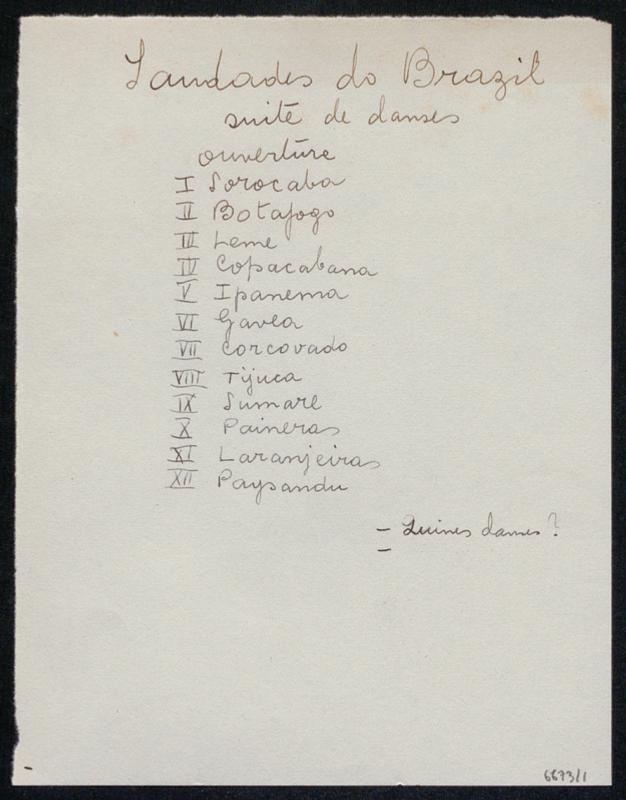 Saudades do Brazil
suite de danses
ouverture
I Sorocaba
II Botafogo
III Leme
IV Copacabana
V Ipanema
VI Gavea
VII Corcovado
VIII Tijuca
IX Sumare
X Paineras
XI Laranjeiras
XII Paysandu
danses ?
6673/1